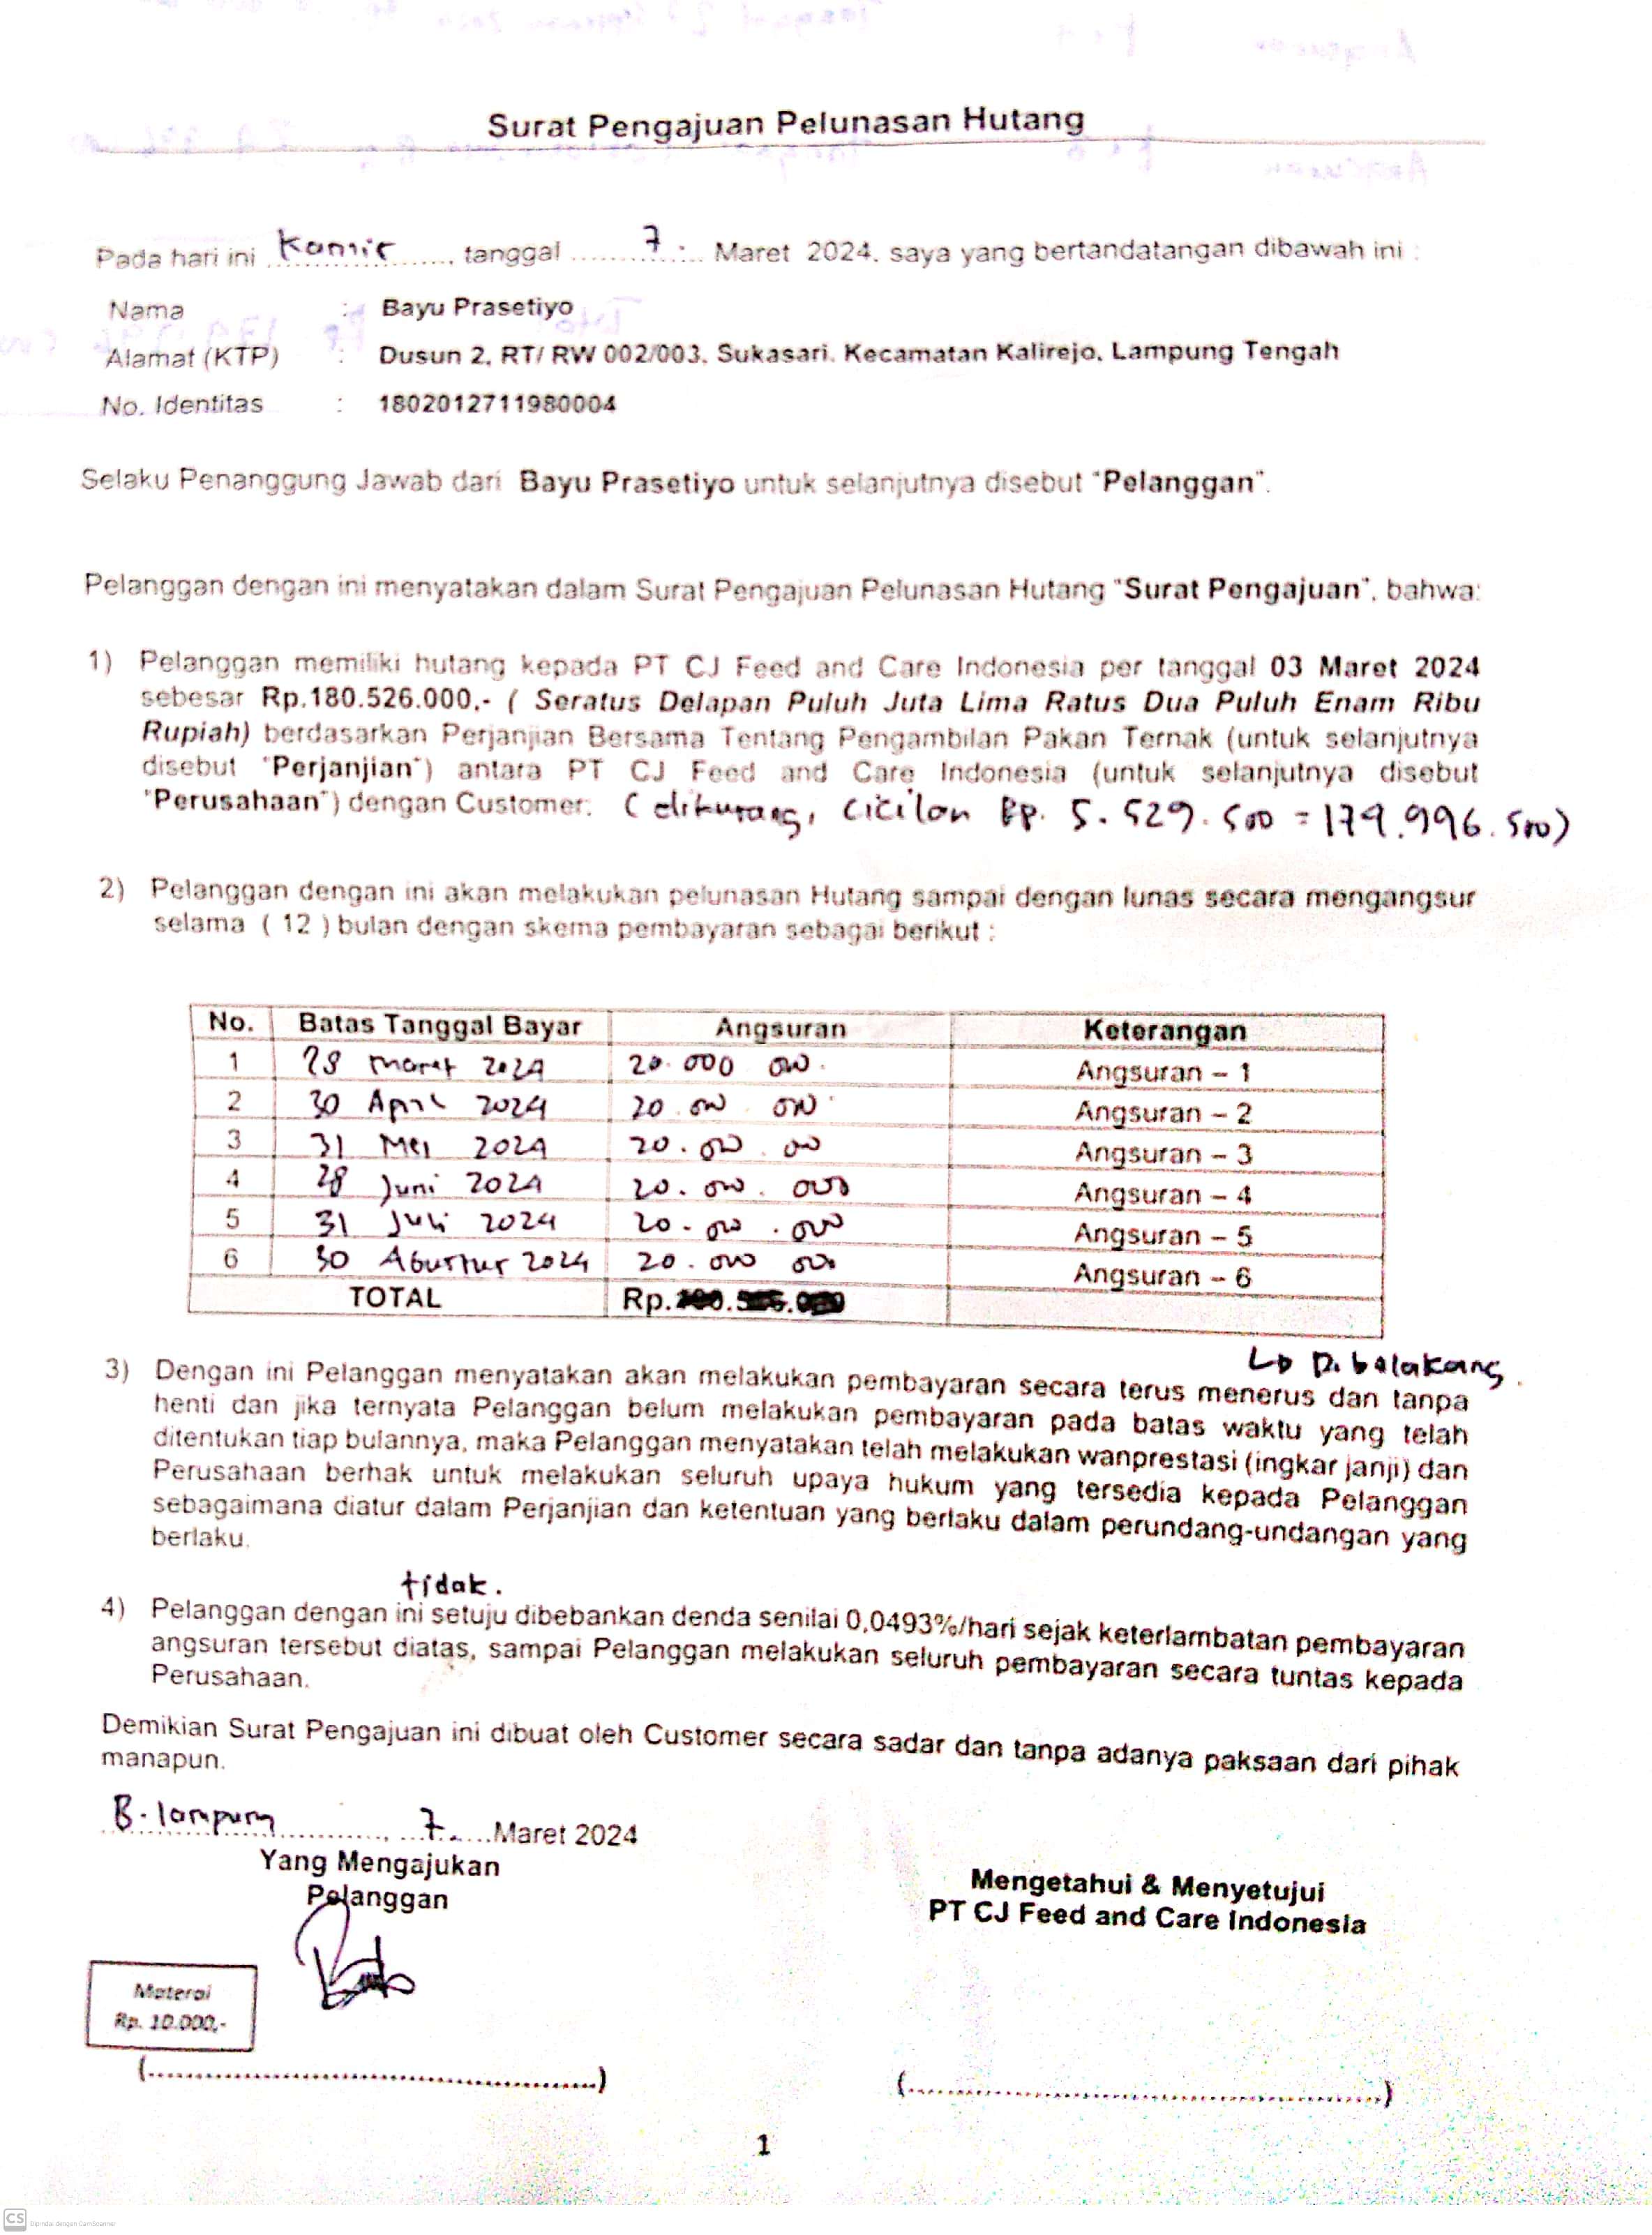 Surat Pengajuan Pelunasan Hutang
Pada hari ini Kamis, tanggal 7. Maret 2024, saya yang bertandatangan dibawah ini :
Nama : Bayu Prasetiyo
Alamat (KTP) : Dusun 2, RT/ RW 002/003, Sukasari, Kecamatan Kalirejo, Lampung Tengah
No. Identitas : 1802012711980004
Selaku Penanggung Jawab dari Bayu Prasetiyo untuk selanjutnya disebut "Pelanggan".
Pelanggan dengan ini menyatakan dalam Surat Pengajuan Pelunasan Hutang "Surat Pengajuan", bahwa:
1) Pelanggan memiliki hutang kepada PT CJ Feed and Care Indonesia per tanggal 03 Maret 2024
sebesar Rp.180.526.000,- ( Seratus Delapan Puluh Juta Lima Ratus Dua Puluh Enam Ribu
Rupiah) berdasarkan Perjanjian Bersama Tentang Pengambilan Pakan Ternak (untuk selanjutnya
disebut "Perjanjian") antara PT CJ Feed and Care Indonesia (untuk selanjutnya disebut
"Perusahaan") dengan Customer. (dikurang, cicilan Rp. 5.529.500 = 179.996.500)
2) Pelanggan dengan ini akan melakukan pelunasan Hutang sampai dengan lunas secara mengangsur
selama ( 12 ) bulan dengan skema pembayaran sebagai berikut :
No. Batas Tanggal Bayar Angsuran Keterangan
1 28 Maret 2024 20.000 000. Angsuran – 1
2 30 April 2024 20.000.000 Angsuran – 2
3 31 Mei 2024 20.000.000 Angsuran – 3
4 28 Juni 2024 20.000.000 Angsuran – 4
5 31 Juli 2024 20.000.000 Angsuran – 5
6 30 Agustus 2024 20.000 000 Angsuran – 6
TOTAL Rp.
↳ Di balakang.
3) Dengan ini Pelanggan menyatakan akan melakukan pembayaran secara terus menerus dan tanpa
henti dan jika ternyata Pelanggan belum melakukan pembayaran pada batas waktu yang telah
ditentukan tiap bulannya, maka Pelanggan menyatakan telah melakukan wanprestasi (ingkar janji) dan
Perusahaan berhak untuk melakukan seluruh upaya hukum yang tersedia kepada Pelanggan
sebagaimana diatur dalam Perjanjian dan ketentuan yang berlaku dalam perundang-undangan yang
berlaku.
tidak.
4) Pelanggan dengan ini setuju dibebankan denda senilai 0,0493%/hari sejak keterlambatan pembayaran
angsuran tersebut diatas, sampai Pelanggan melakukan seluruh pembayaran secara tuntas kepada
Perusahaan.
Demikian Surat Pengajuan ini dibuat oleh Customer secara sadar dan tanpa adanya paksaan dari pihak
manapun.
B. lampung, 7. Maret 2024
Yang Mengajukan
Pelanggan
Mengetahui & Menyetujui
PT CJ Feed and Care Indonesia
Materai
Rp. 10.000,-
(..............................................)
(..............................................)
1
CS Dipindai dengan CamScanner